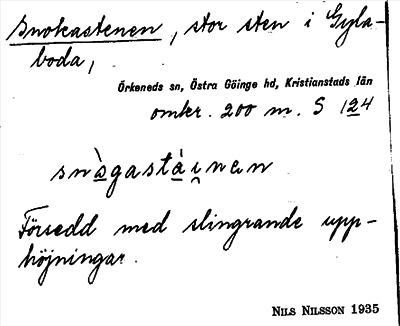 Snokastenen, stor sten i Gyla-
boda,
Örkeneds sn, Östra Göinge hd, Kristianstads län
omkr. 200 m. S 124
snàgastàı̯nan
Försedd med slingrande upp-
höjningar.
NILS NILSSON 1935